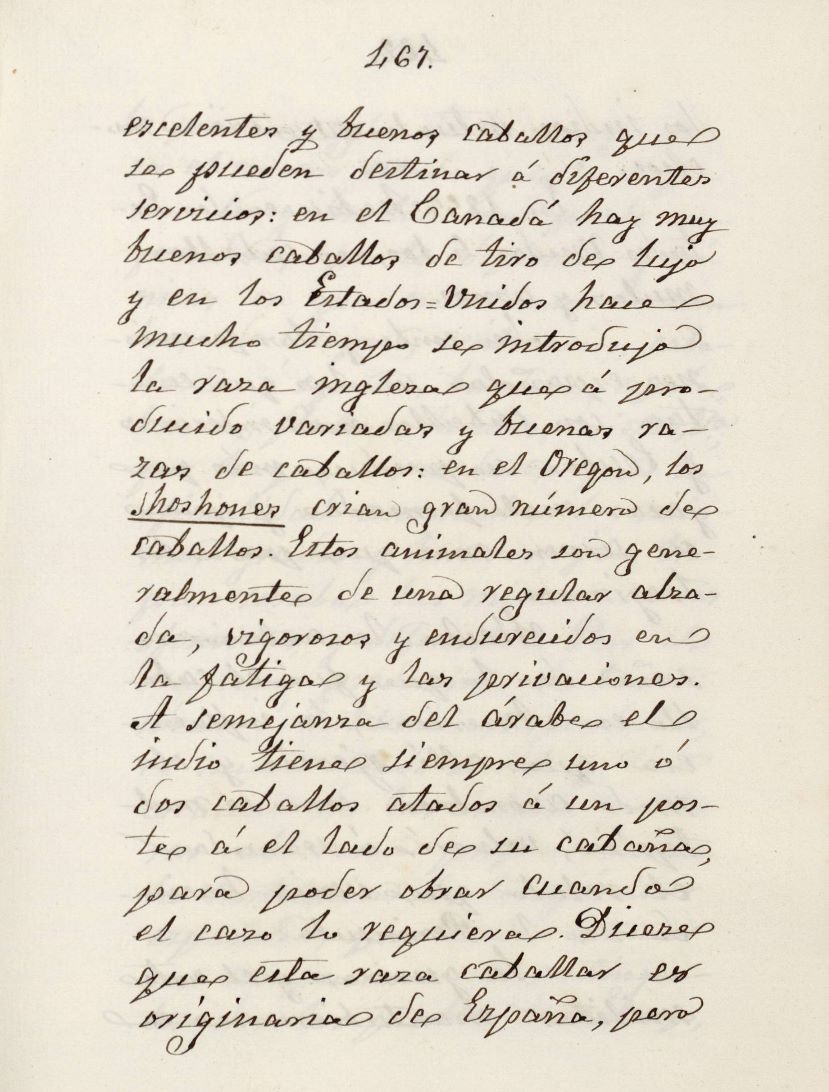 167.
escelentes y buenos caballos que
se pueden destinar á diferentes
servicios: en el Canadá hay muy
buenos caballos de tiro de lujo
y en los Estados=Unidos hace
mucho tiempo se introdujo
la raza inglesa que á pro-
ducido variadas y buenas ra-
zas de caballos: en el Oregon, los
shoshones crian gran número de
caballos. Estos animales son gene-
ralmente de una regular alza-
da, vigorosos y endurecidos en
la fatiga y las privaciones.
A semejanza del árabe el
indio tiene siempre uno ó
dos caballos atados á un pos-
te á el lado de su cabaña,
para poder obrar cuando
el caso lo requiera. Dicese
que esta raza caballar es
originaria de España, pero